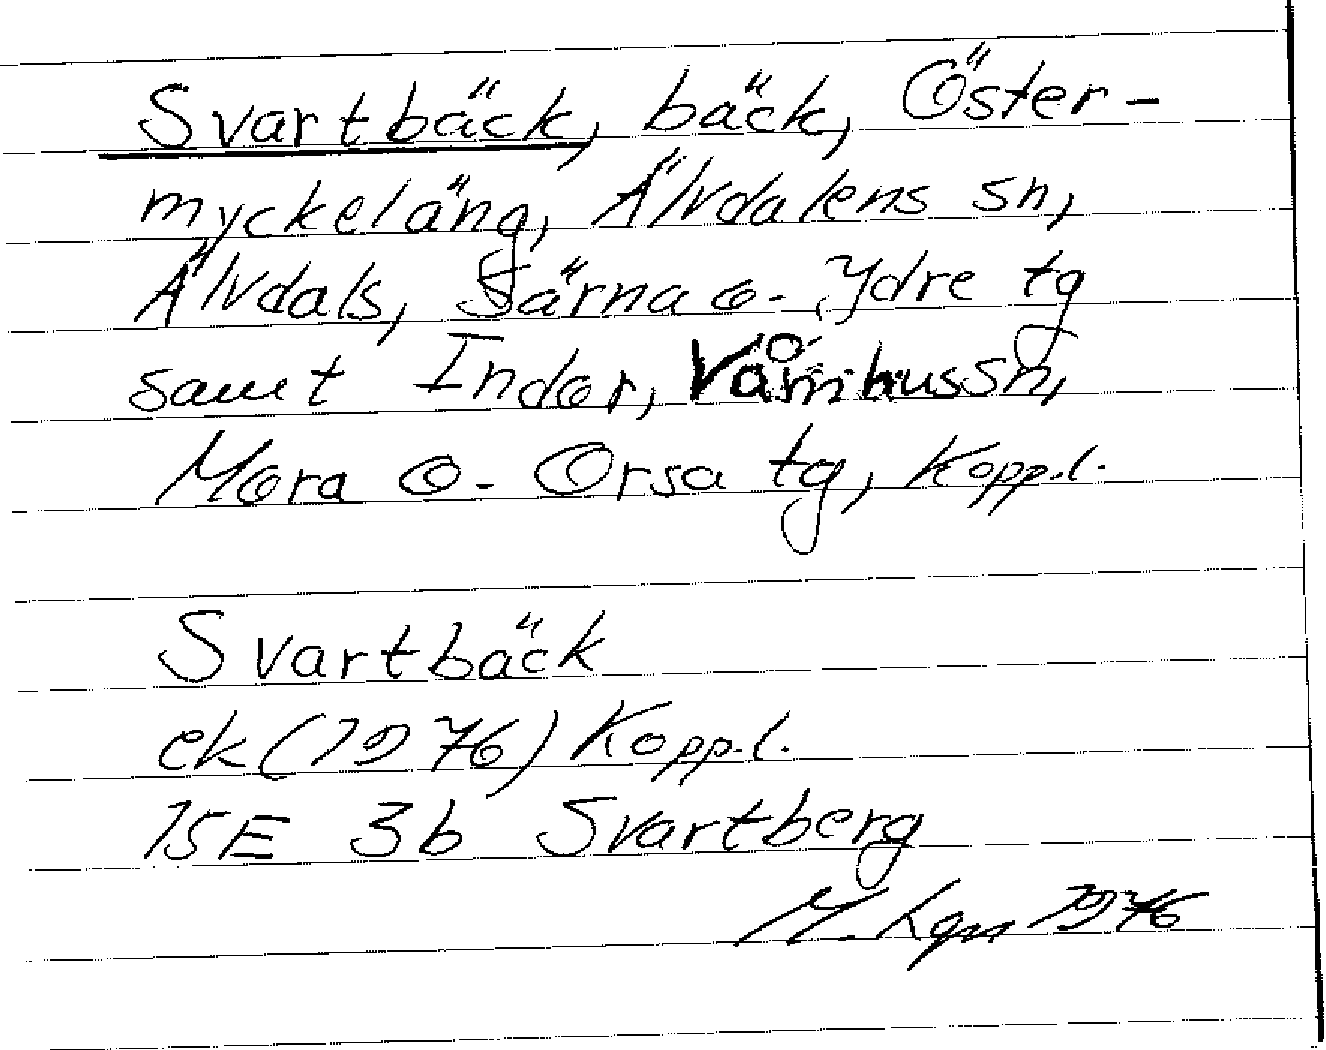 Svartbäck, bäck, Öster-
myckeläng, Älvdalens sn,
Älvdals, Särna o. Ydre tg
samt Indor, Våmhus sn,
Mora o. Orsa tg, Kopp.l.
Svartbäck
ek (1976) Kopp.l.
15E 3b Svartberg
M. Lgn 1976